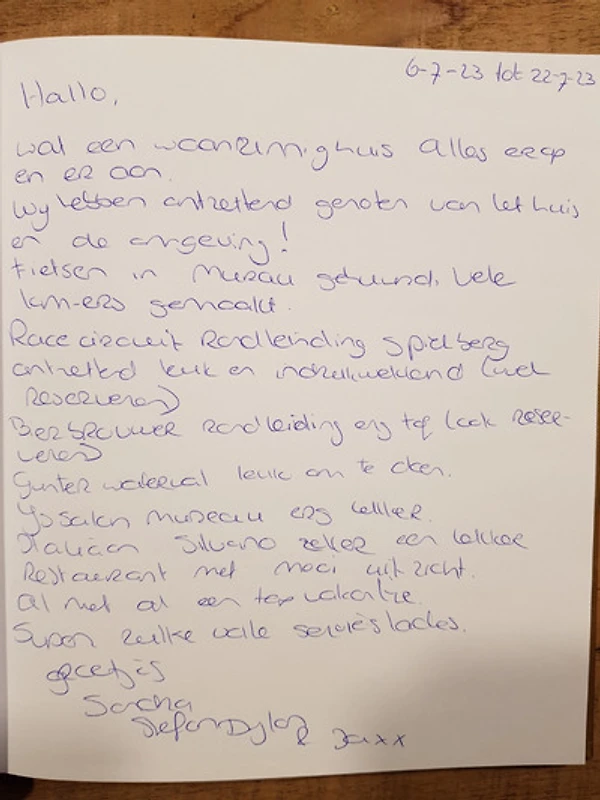 6-7-23 tot 22-7-23
Hallo,
wat een waanzinnig huis alles erop
en er aan.
Wij hebben ontzettend genoten van het huis
en de omgeving!
Fietsen in Murau gehuurd, vele
km-ers gemaakt.
Race circuit Rondleiding Spielberg
ontzettend leuk en indrukwekkend (wel
Reserveren)
Bierbrouwer rondleiding erg top (ook reser-
veren)
Gunter waterval leuk om te doen.
IJssalon Mureau erg lekker.
Italiaan Silvano zeker een lekker
Restaurant met mooi uitzicht.
Al met al een top vakantie.
Super zulke volle servieslades.
groetjes
Sascha
Stefan Dylan
& Jaxx